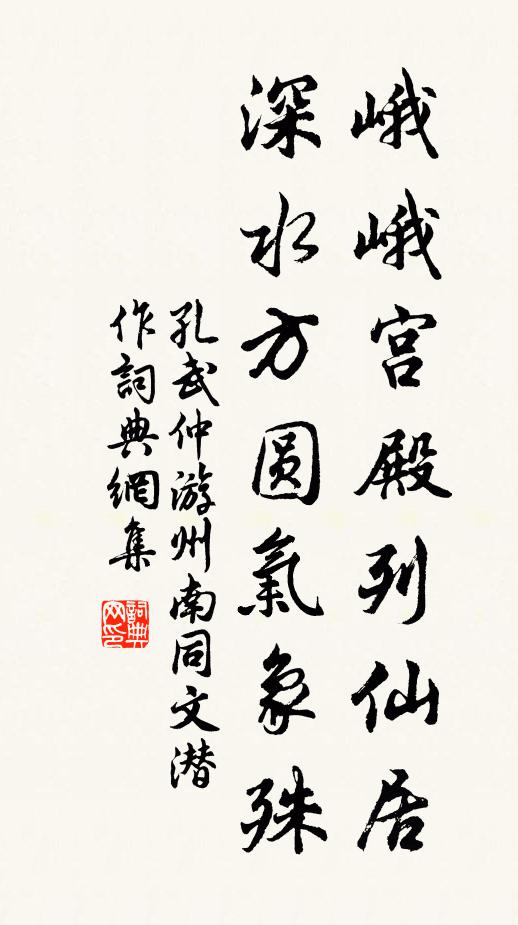 峨峨宫殿列仙居
深水方圆氣象殊
孔武仲游州南同文潜
作詞典網集
詞典网印